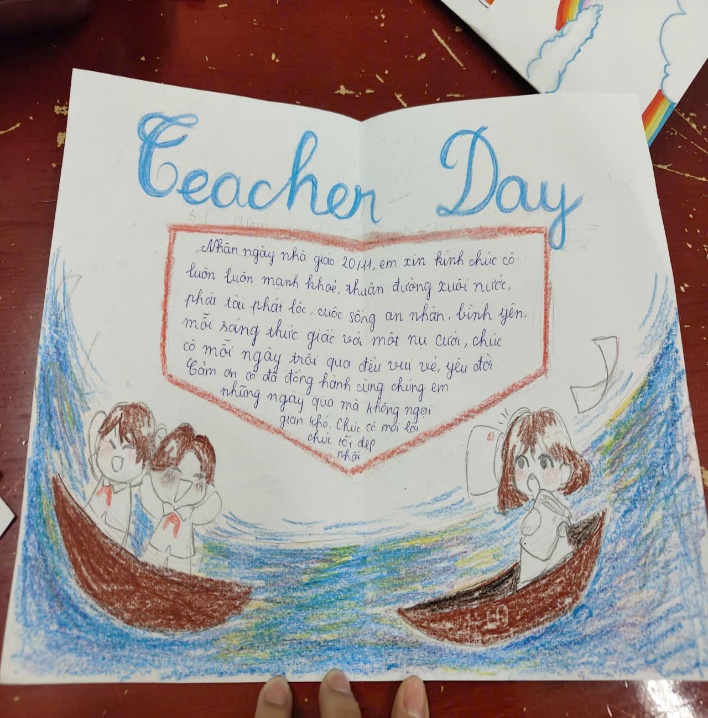 Teacher Day
Nhân ngày nhà giáo 20/11, em xin kính chúc cô
luôn luôn mạnh khoẻ, thuận đường xuôi nước,
phát tài phát lộc, cuộc sống an nhàn, bình yên.
mỗi sáng thức giấc với một nụ cười, chúc
cô mỗi ngày trôi qua đều vui vẻ, yêu đời
Cảm ơn cô đã đồng hành cùng chúng em
những ngày qua mà không ngại
gian khó. Chúc cô mọi lời
chúc tốt đẹp
nhất